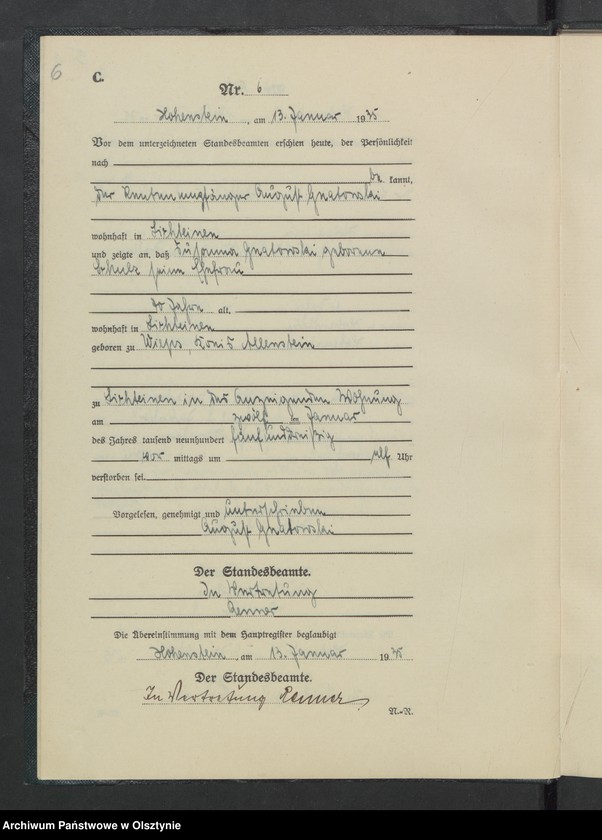 6
C.
Nr. 6
Hohenstein, am 13. Januar 1935
Vor dem unterzeichneten Standesbeamten erschien heute, der Persönlichkeit
nach
be kannt,
der Rentenempfänger August Gnatowski
wohnhaft in Lichteinen
und zeigte an, daß Susanna Gnatowski geborene
Schulz seine Ehefrau
Jahre alt,
wohnhaft in Lichteinen
geboren zu Wieps, Kreis Allenstein
zu Lichteinen in des Anzeigenden Wohnung
am zwölf ten Januar
des Jahres tausend neunhundert fünfunddreißig
vor mittags um elf Uhr
verstorben sei.
Vorgelesen, genehmigt und unterschrieben
August Gnatowski
Der Standesbeamte.
In Vertretung
Renner
Die Übereinstimmung mit dem Hauptregister beglaubigt
Hohenstein, am 13. Januar 1935
Der Standesbeamte.
In Vertretung Renner
A.-R.
Archiwum Państwowe w Olsztynie